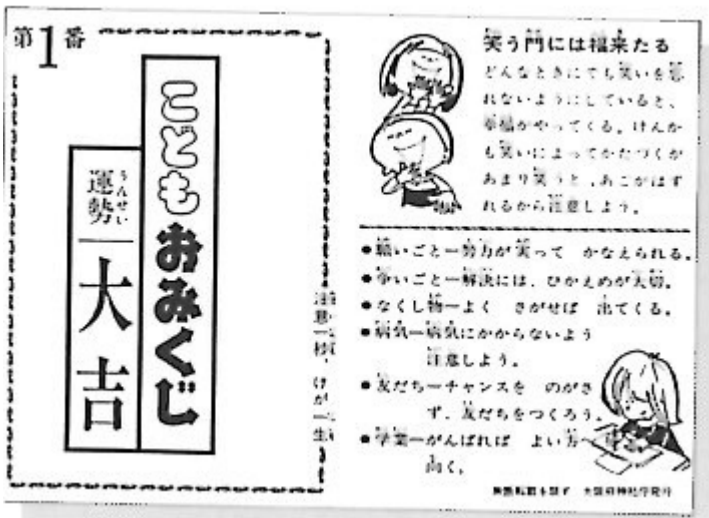 第1番
こどもおみくじ
運勢 大吉
うんせい
注意一秒、けが一生
笑う門には福来たる
どんなときにでも笑いを忘
れないようにしていると、
幸福がやってくる。けんか
も笑いによってかたづくが
あまり笑うと、あごがはず
れるから注意しよう。
●願いごと―努力が実って かなえられる。
●争いごと―解決には、ひかえめが大切。
●なくし物―よく さがせば 出てくる。
●病気―病気にかからないよう
注意しよう。
●友だち―チャンスを のがさ
ず、友だちをつくろう。
●学業―がんばれば よい方へ
向く。
無断転載を禁ず 大阪府神社庁発行